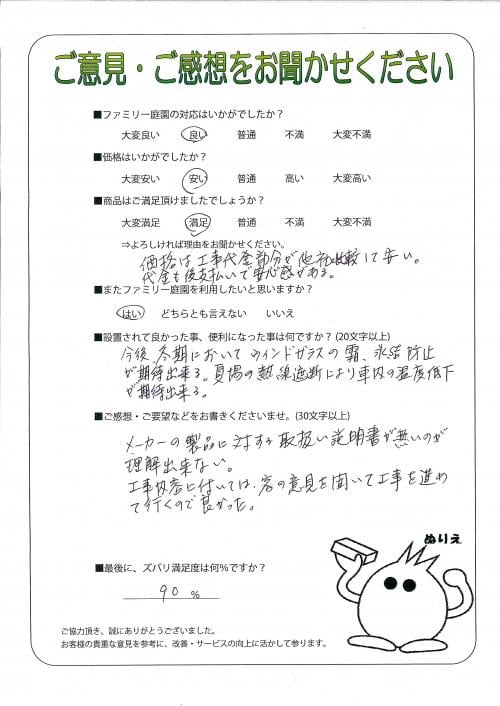 ご意見・ご感想をお聞かせください
■ファミリー庭園の対応はいかがでしたか?
大変良い 良い 普通 不満 大変不満
■価格はいかがでしたか?
大変安い 安い 普通 高い 大変高い
■商品はご満足頂けましたでしょうか?
大変満足 満足 普通 不満 大変不満
⇒よろしければ理由をお聞かせください。
価格は工事代金部分が他社比較して安い。
代金も後支払いで安心感がある。
■またファミリー庭園を利用したいと思いますか?
はい どちらとも言えない いいえ
■設置されて良かった事、便利になった事は何ですか?(20文字以上)
今後冬期においてウィンドガラスの霜、氷結防止
が期待出来る。夏場の熱線遮断により車内の温度低下
が期待出来る。
■ご感想・ご要望などをお書きくださいませ。(30文字以上)
メーカーの製品に対する取扱い説明書が無いのが
理解出来ない。
工事内容に付いては、客の意見を聞いて工事を進め
て行くので良かった。
ぬりえ
■最後に、ズバリ満足度は何%ですか?
90 %
ご協力頂き、誠にありがとうございました。
お客様の貴重な意見を参考に、改善・サービスの向上に活かして参ります。